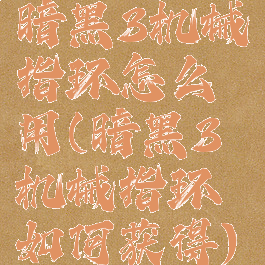 暗黑3机械
指环怎么
用(暗黑3
机械指环
如何获得)